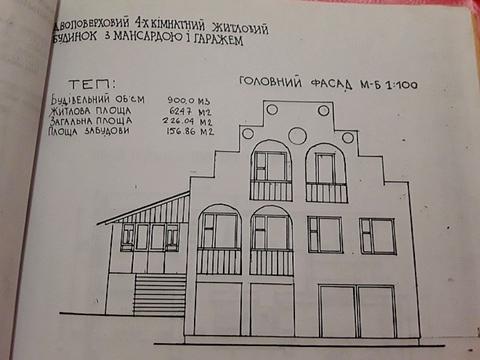 Двоповерховий 4-х кімнатний житловий
будинок з мансардою і гаражем
ТЕП:
Будівельний об'єм 900,0 м3
Житлова площа 62.47 м2
Загальна площа 226.04 м2
Площа забудови 156.86 м2
Головний фасад М-Б 1:100